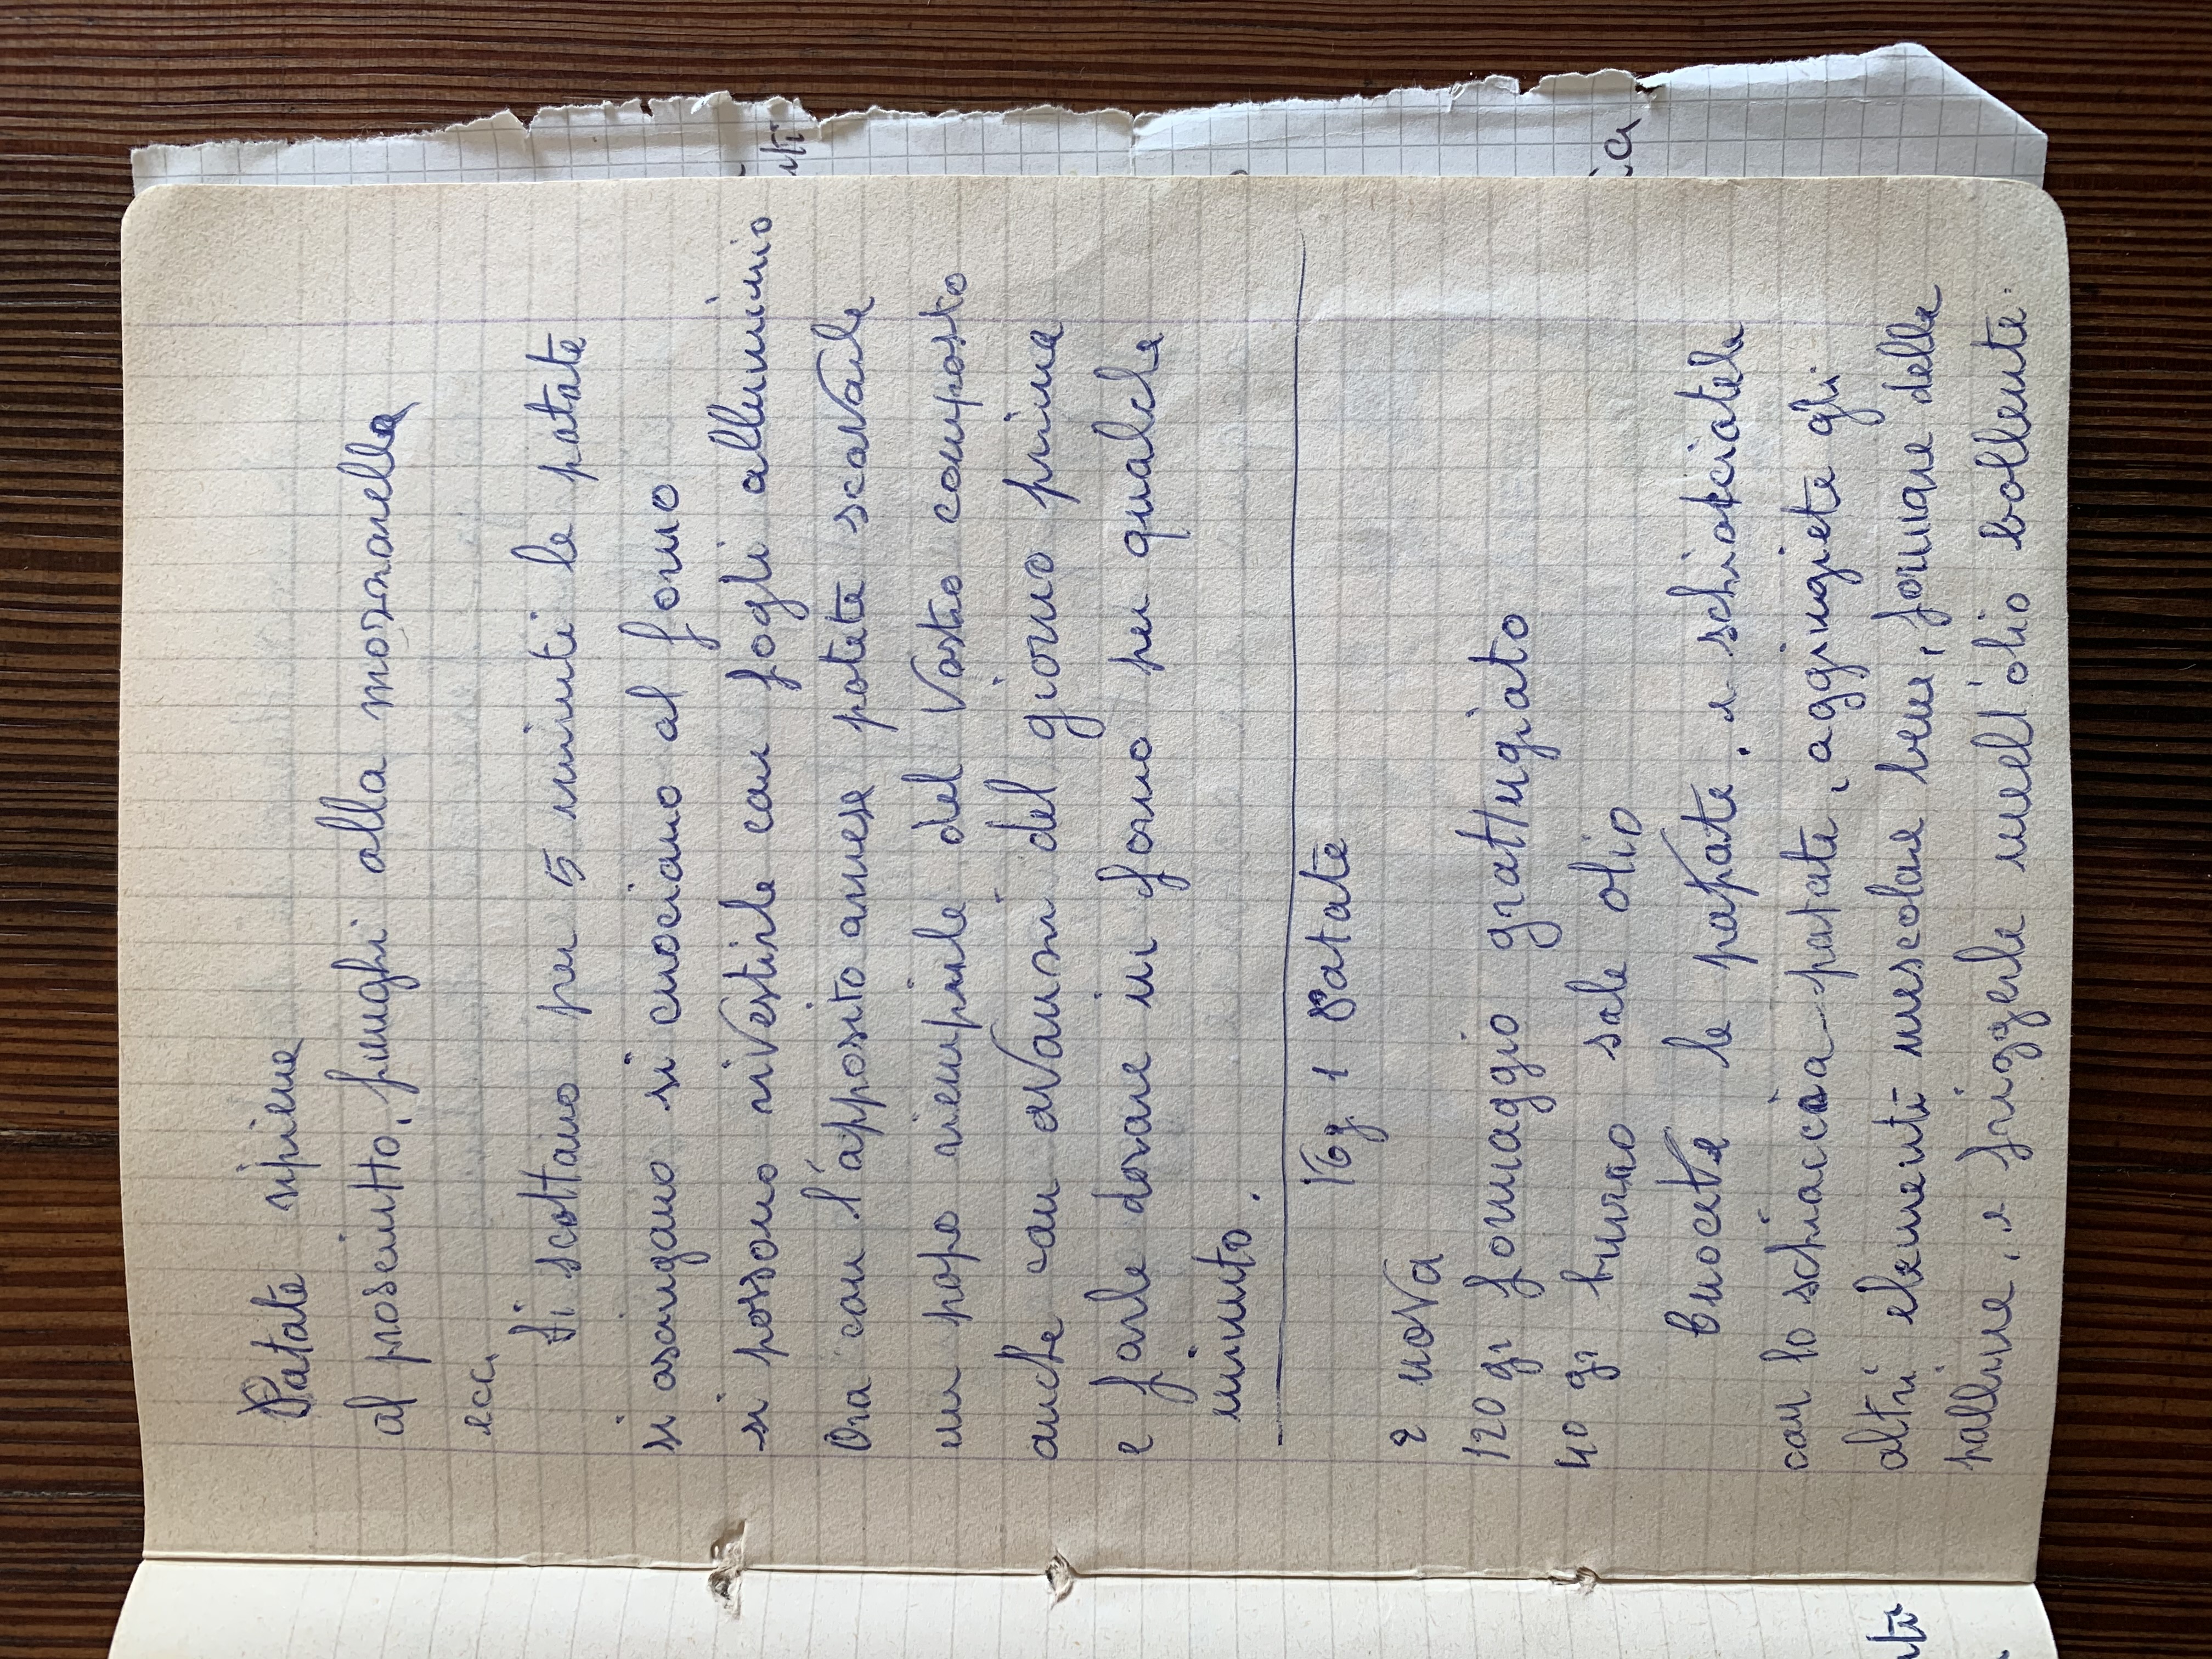 Patate ripiene
al prosciutto, funghi alla mozzarella
ecc.
Si scottano per 5 minuti le patate
si asciugano si cuociano al forno
si possono rivestirle con fogli alluminio
Ora con l'apposito arnese potete scavarle
un popo riempirle del Vostro composto
anche con avanzi del giorno prima
e farle dorare in forno per qualche
minuto.
Kg. 1 Patate
2 uova
120 gr formaggio grattugiato
40 gr burro sale olio
Cuocete le patate, e schiacciatele
con lo schiaccia-patate, aggiugiete gli
altri elementi mescolare bene, formare delle
palline, e friggerle nell'olio bollente.